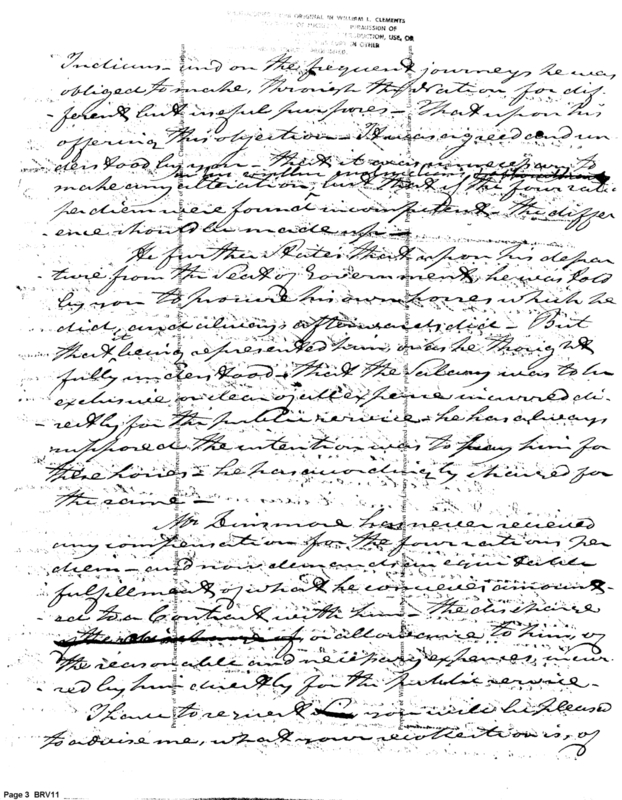 ORIGINAL IN WILLIAM L. CLEMENTS
PERMISSION OF
USE, OR
IN OTHER
Indians - and on the frequent journeys he was
obliged to make, through the Nation for dif-
ferent but useful purposes - That upon his
offering this objection - It was agreed and un-
derstood by you - that it was unnecessary to
make any alteration, but that if the four rations
per diem were found incompetent - the differ-
ence should be made up -
He further States that upon his depar-
ture from the Seat of Government, he was told
by you to procure his own horses which he
did, and always afterwards did - But
that it being represented to him, or as he thought
fully understood - that the Salary was to be
exclusive or clear of all expense incurred di-
rectly for the public service - he has always
supposed the intention was to pay him for
these horses - he has accordingly charged for
the same -
Mr Dinsmore has never received
any compensation for the four rations per
diem - and now demands an equitable
fulfillment of what he conceives amount-
ed to a Contract with him - the discharge
or allowance to him, of
the reasonable and necessary expenses, incur-
red by him directly for the public service -
I have to request you will be pleased
to advise me, what your recollection is, of
Page 3 BRV11